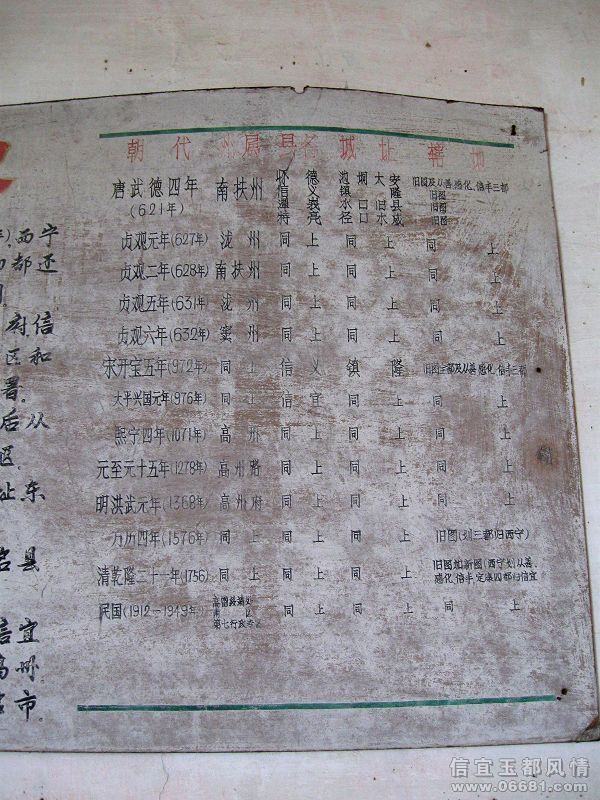 朝代 州属 县名 城址 辖地
唐武德四年 南扶州 怀德 信义 潭峩 特亮 池峒 镇口 水旧 径口 大安 旧县 水威 旧图及从善、感化、信丰三都
(621年) 旧图
旧图
旧图
贞观元年(627年) 泷州 同上 同上 同上
贞观二年(628年) 南扶州 同上 同上 同上
贞观五年(631年) 泷州 同上 同上 同上
贞观六年(632年) 窦州 同上 同上 同上
宋开宝五年(972年) 同上 信义 镇隆 旧图三都及从善、感化、信丰三都
太平兴国元年(976年) 同上 信宜 同上 同上
熙宁四年(1071年) 高州 同上 同上 同上
元至元十五年(1278年) 高州路 同上 同上 同上
明洪武元年(1368年) 高州府 同上 同上 同上
万历四年(1576年) 同上 同上 同上 旧图(划三都归西宁)
清乾隆二十一年(1756) 同上 同上 同上 旧图加新图(西宁划从善、
感化、信丰、定康四都归信宜
民国(1912—1949年) 同上 同上 同上
第七行政
,西宁
都还
府信
区和
署,
后从
区,
址东
县
信宜
高州
市
信宜玉都风情
www.06681.com